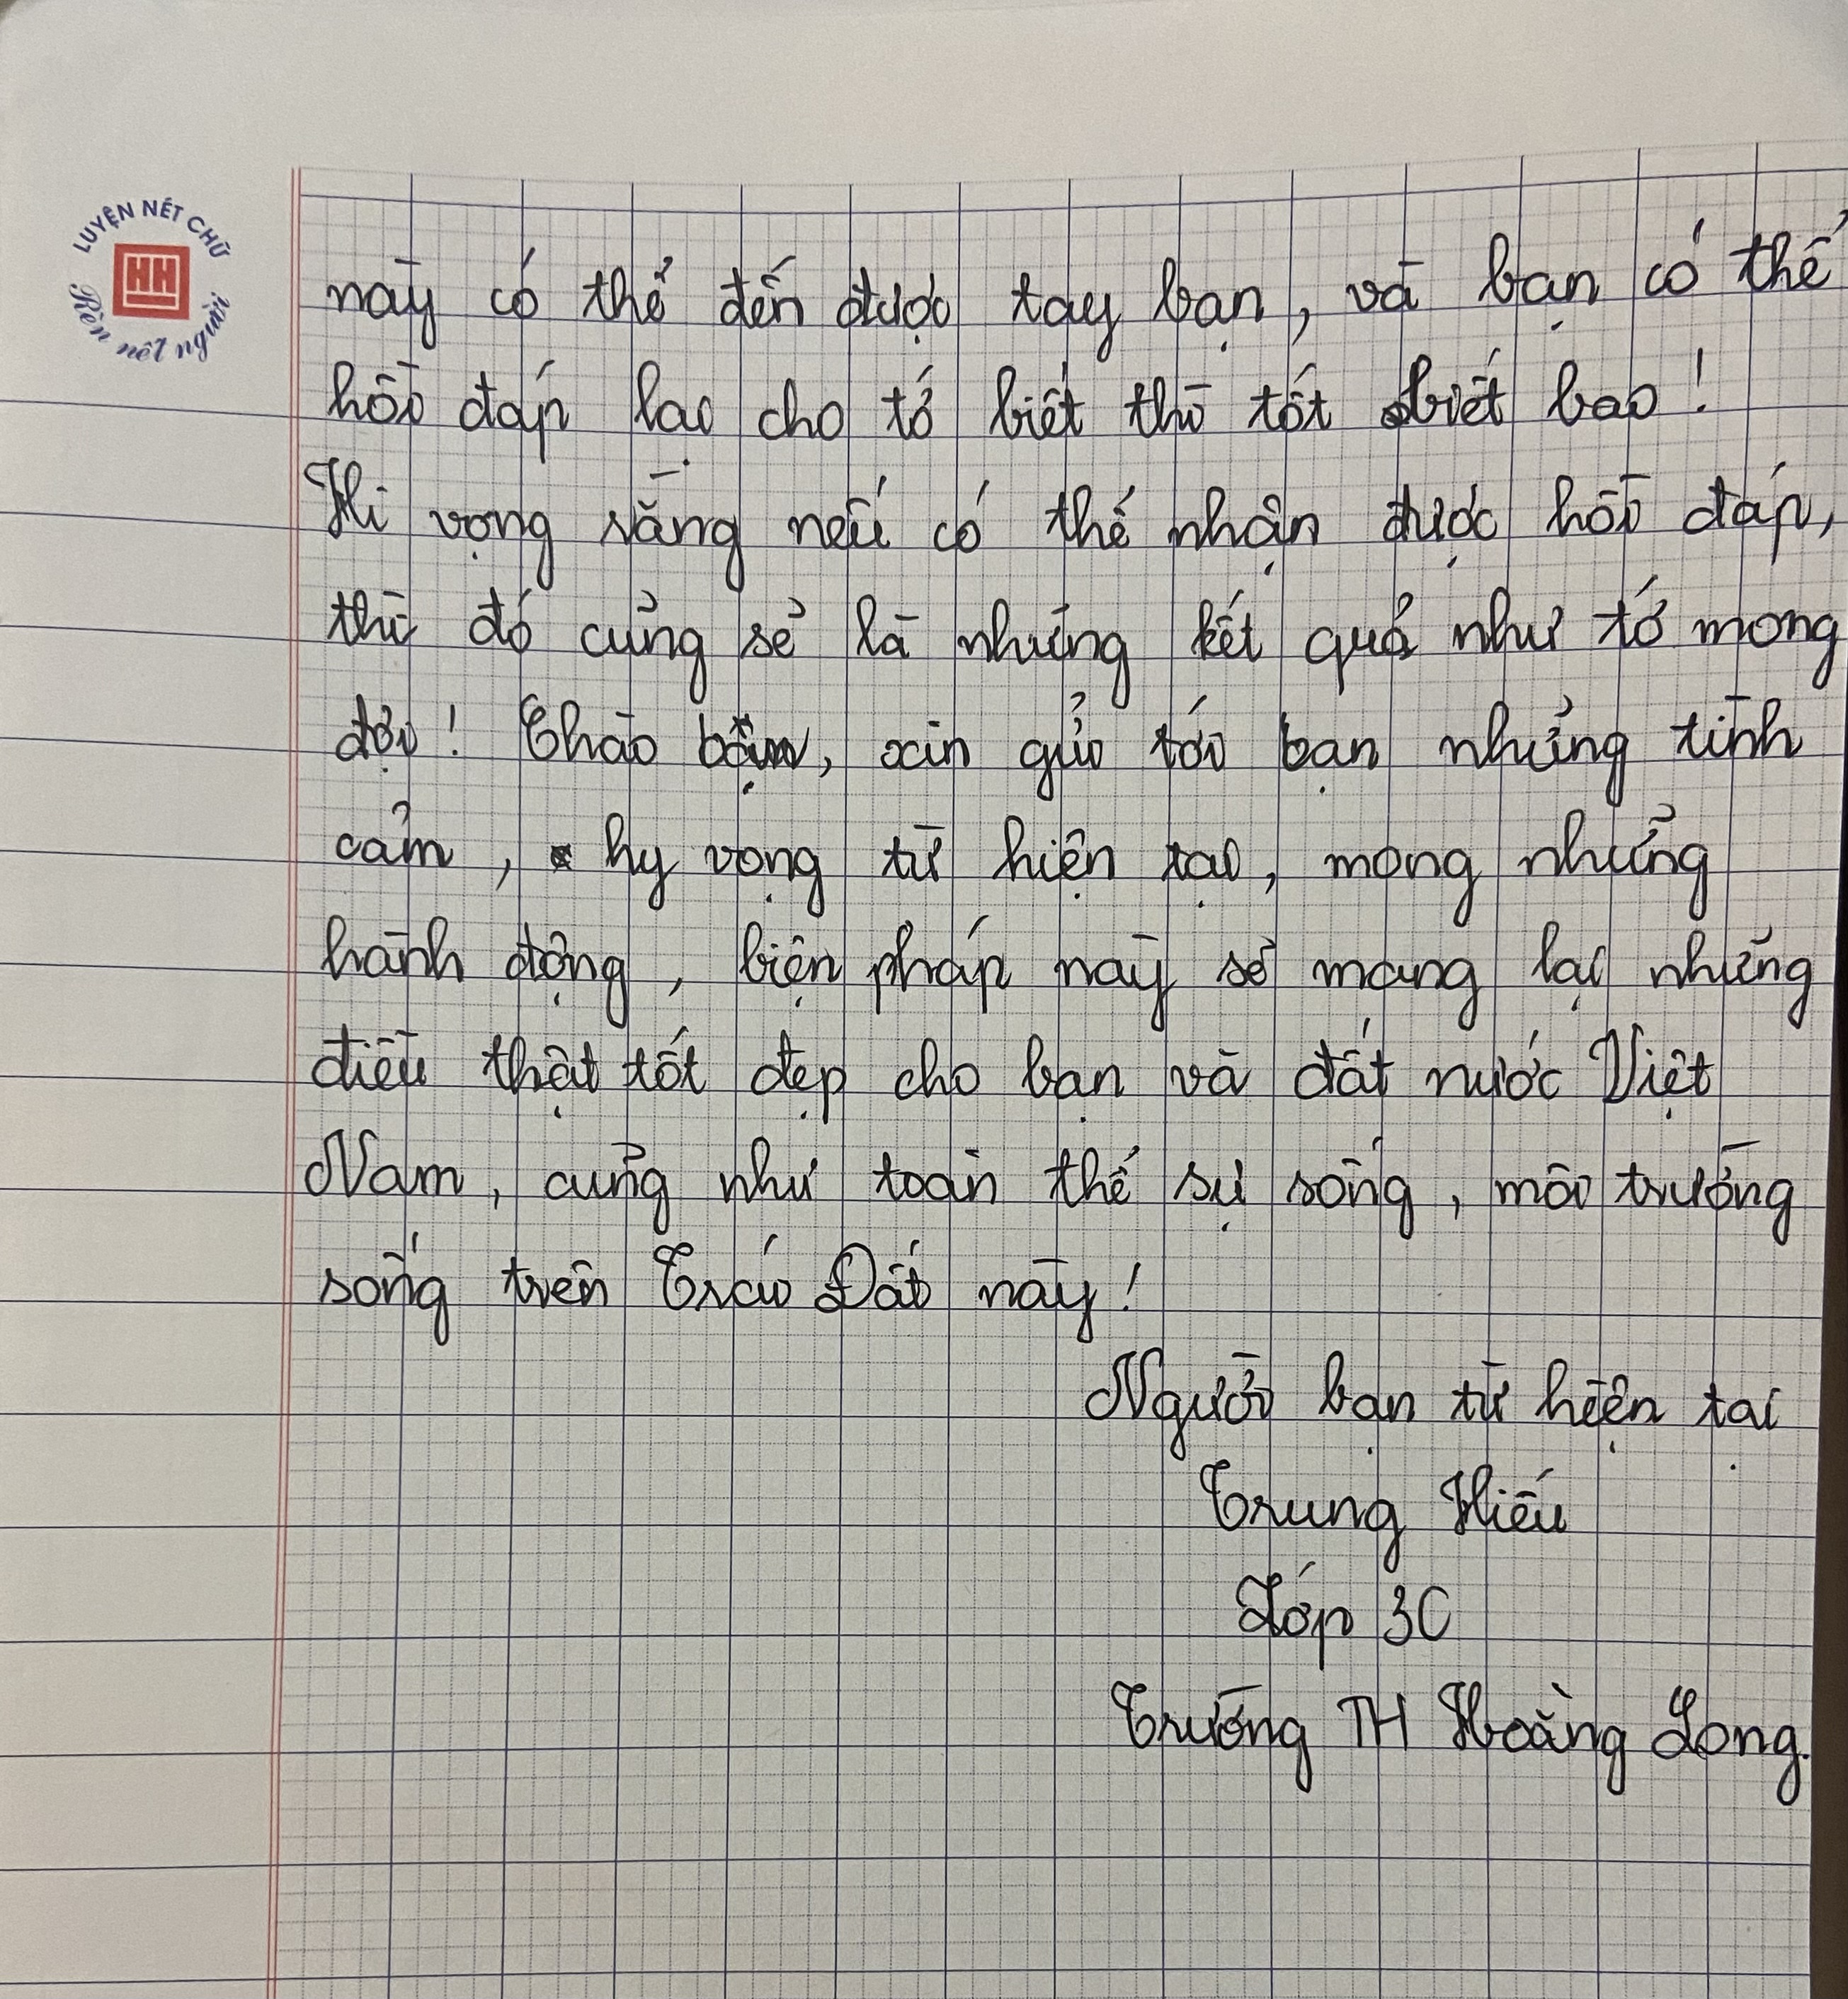 LUYỆN NÉT CHỮ
HH
Rèn nết người
này có thể đến được tay bạn, và bạn có thể
hồi đáp lại cho tớ biết thì tốt biết bao!
Hi vọng rằng nếu có thể nhận được hồi đáp,
thì đó cũng sẽ là những kết quả như tớ mong
đợi! Chào bạn, xin gửi tới bạn những tình
cảm, hy vọng từ hiện tại, mong những
hành động, biện pháp này sẽ mang lại những
điều thật tốt đẹp cho bạn và đất nước Việt
Nam, cũng như toàn thể sự sống, môi trường
sống trên Trái Đất này!
Người bạn từ hiện tại
Trung Hiếu
Lớp 3C
Trường TH Hoàng Long.